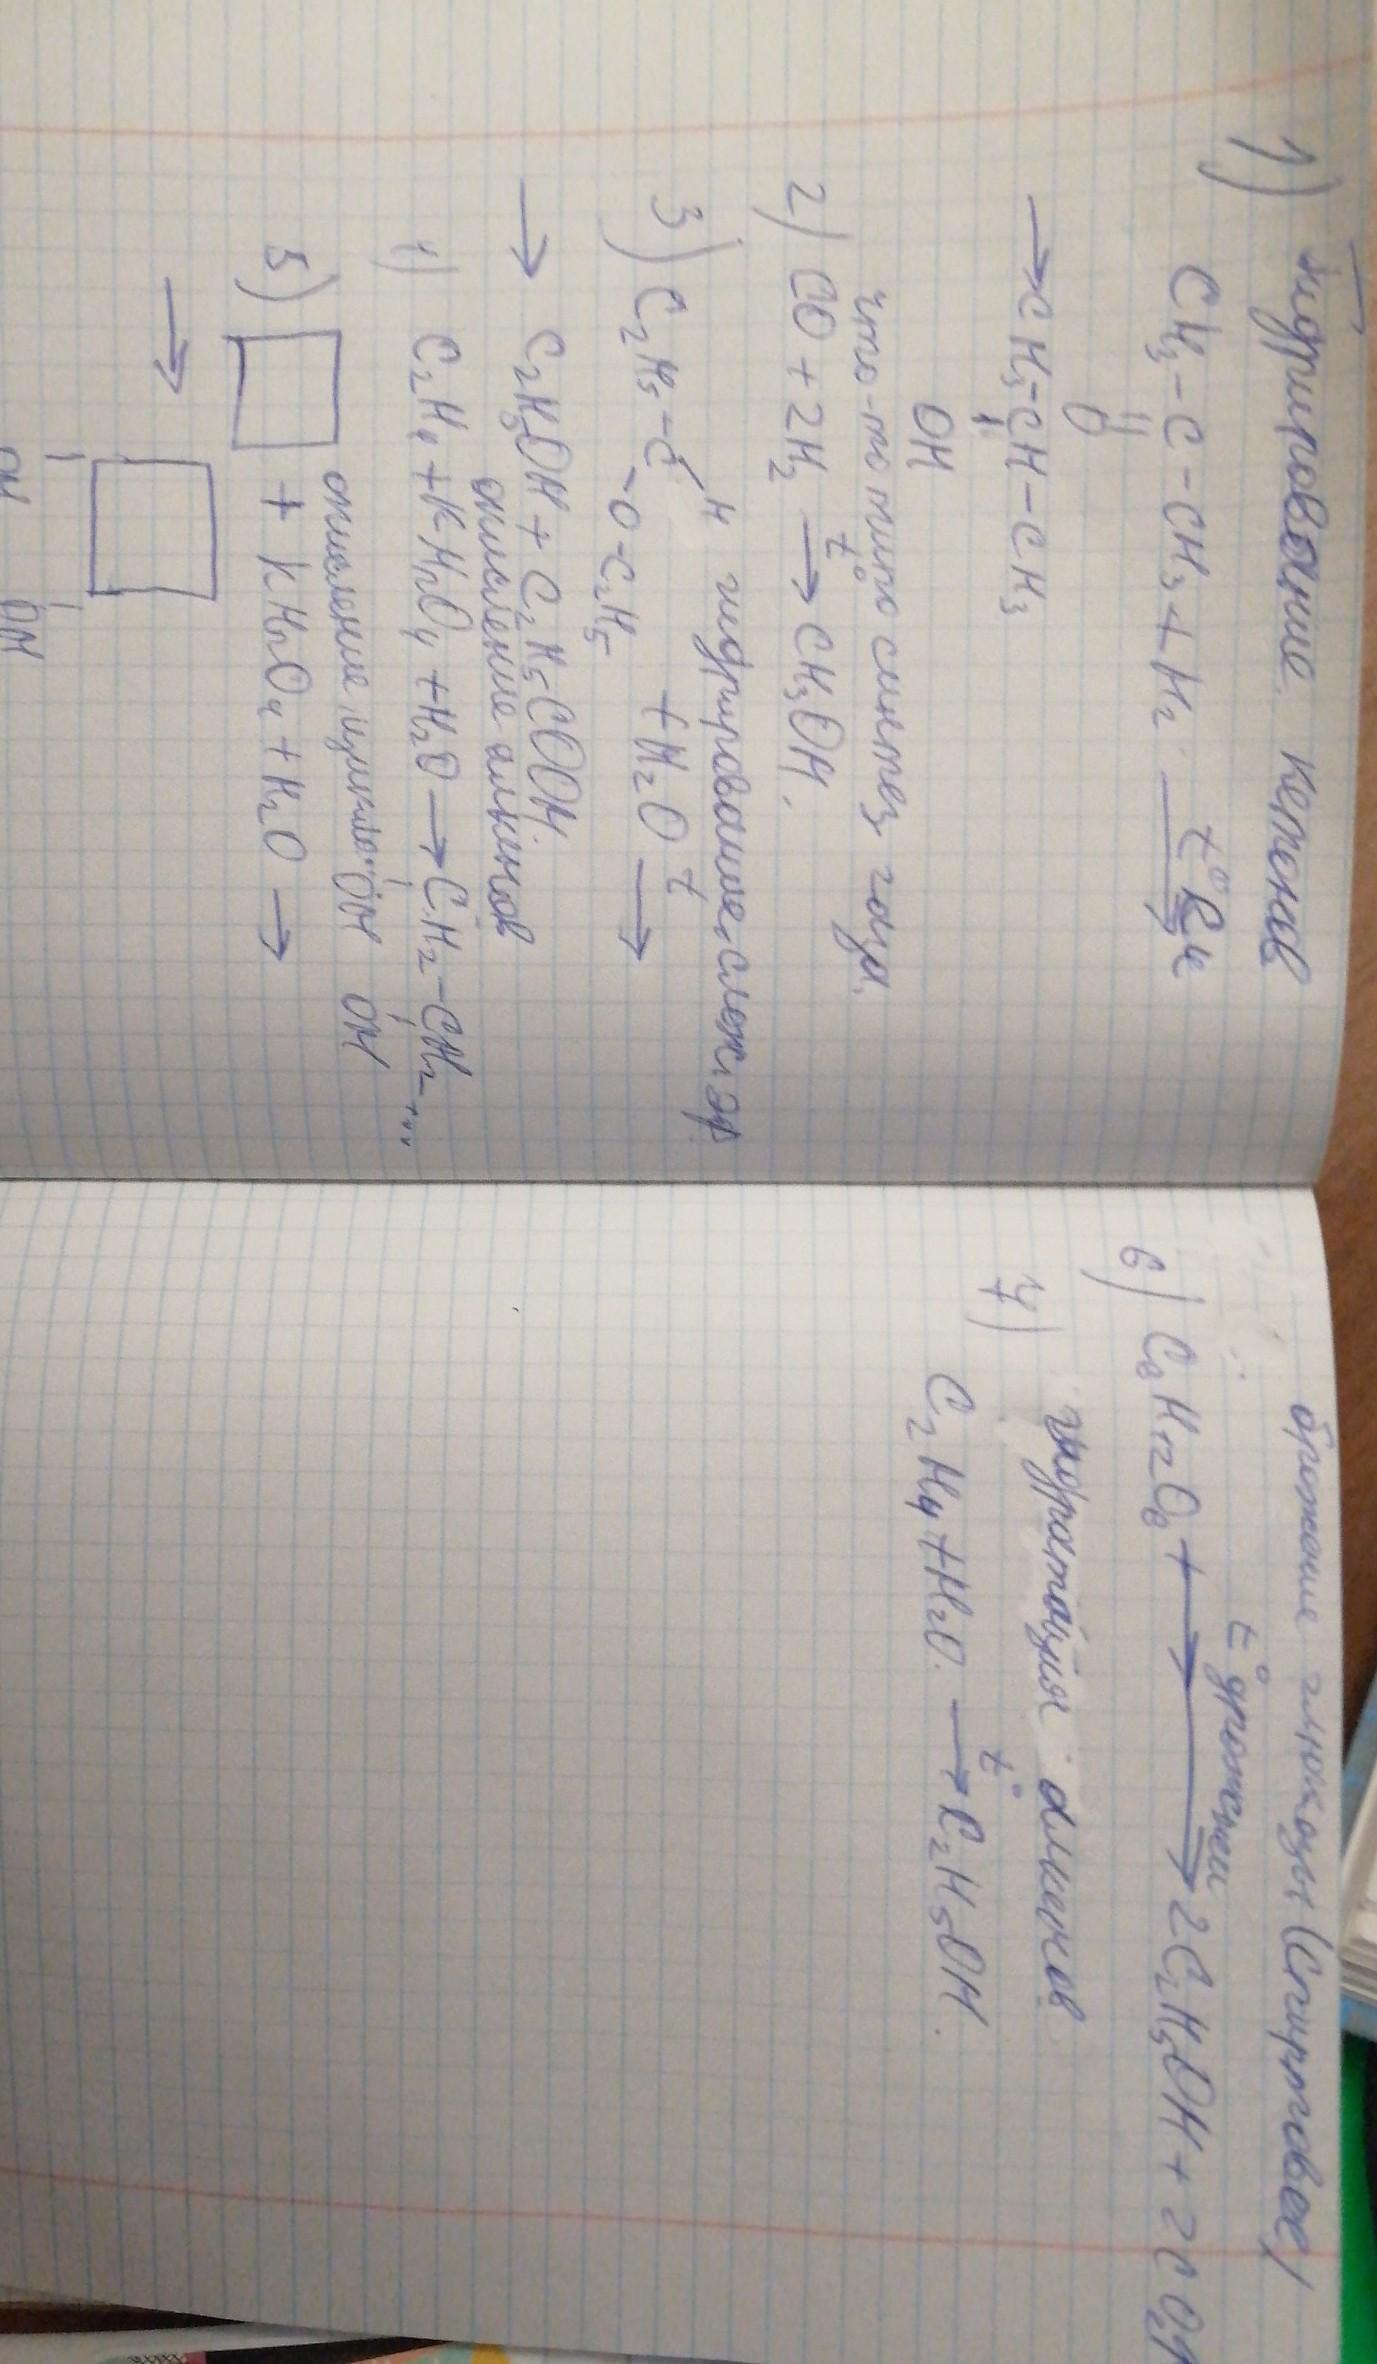 1) гидрирование кетонов
CH₃-C-CH₃ + H₂ t°
O
→ CH₃-CH-CH₃
OH
что-то типо синтез газа
2) CO + 2H₂ t° → CH₃OH.
H гидрирование слож эф
3) C₂H₅-C-O-C₂H₅ + H₂O t →
→ C₂H₅OH + C₂H₅COOH
окисление алкенов
C₂H₄ + KMnO₄ + H₂O → CH₂-CH₂ + ...
окисление OH OH
5) + KMnO₄ + H₂O →
→
OH OH
брожение глюкозы (спиртовое)
t° дрожжи
6) + → 2C₂H₅OH + 2CO₂
7) гидратация алкенов
C₂H₄ + H₂O. t° → C₂H₅OH.